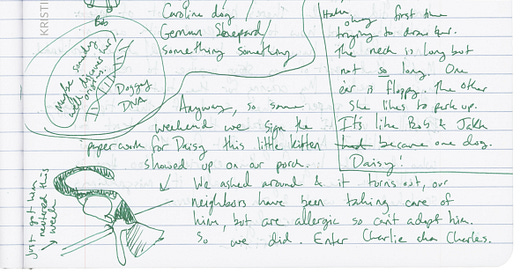 KRISTI
Bob
Caroline dog/
German Shepard/
something something
Maybe someday
we'll discover her
origins.
Doggy
DNA
okay first time
trying to draw her.
The neck is long but
not so long. One
ear is floppy. The other
she likes to perk up.
It's like Bob & Jakk
became one dog.
Daisy!
Anyway, so same
weekend we sign the
paperwork for Daisy this little kitten
showed up on our porch.
We asked around & it turns out, our
neighbors have been taking care of
him, but are allergic so can't adopt him.
So we did. Enter Charlie aka Charles.
Just got him
neutered this
week